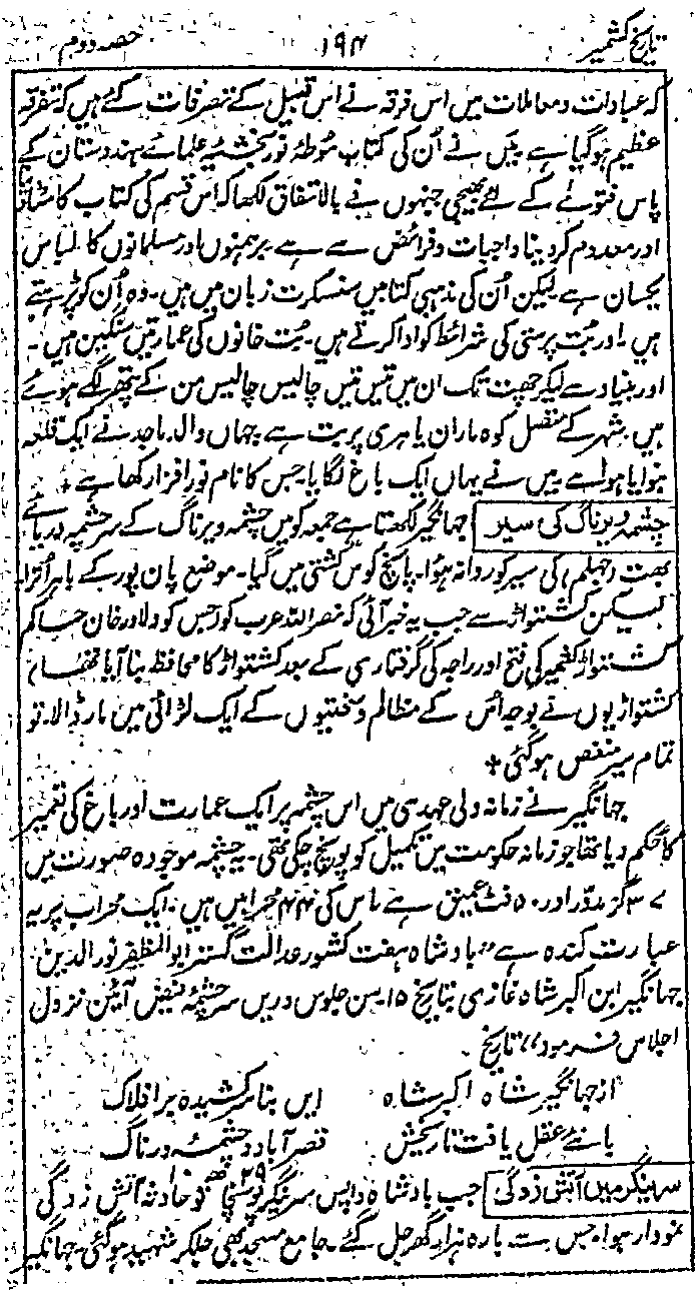 تاریخ کشمیر ۱۹۴ حصہ دوم
کہ عبادات و معاملات میں اس فرقہ نے اس قبیل کے تصرفات کئے ہیں کہ تفرقہ
عظیم ہوگیا ہے میں نے اُن کی کتاب حوطۂ نوربخشیہ علمائے ہندوستان کے
پاس فتوےٰ کے لئے بھیجی جنہوں نے بالاتفاق لکھا کہ اس قسم کی کتاب کا مٹانا
اور معدوم کردینا واجبات و فرائض سے ہے۔ برہمنوں اور مسلمانوں کا لباس
یکساں ہے لیکن اُن کی مذہبی کتابیں سنسکرت زبان میں ہیں۔ وہ اُن کو پڑہتے
ہیں۔ اور بُت پرستی کی شرائط کو ادا کرتے ہیں۔ بُت خانوں کی عمارتیں سنگین ہیں۔
اور بنیاد سے لیکر چھت تک ان میں تیس تیس چالیس چالیس من کے پتھر لگے ہوئے
ہیں۔ شہر کے متصل کوہ ماران یا ہری پربت ہے جہاں والد ماجد نے ایک قلعہ
بنوایا ہوا ہے میں نے یہاں ایک باغ لگایا جس کا نام نور افزا رکھا ہے +
چشمہ ویرناگ کی سیر جہانگیر لکھتا ہے جمعہ کو میں چشمہ ویرناگ کے سرچشمہ دریائے
بھت (جہلم) کی سیر کو روانہ ہؤا۔ پانچ کوس کشتی میں گیا۔ موضع پان پور کے باہر اُترا۔
لیکن کشتواڑ سے جب یہ خبر آئی کہ نصر اللہ عرب کو (جس کو دلاور خان حاکم
کشمیر کشتواڑ کی فتح اور راجہ کی گرفتاری کے بعد کشتواڑ کا محافظ بنا آیا تھا)
کشتواڑیوں نے بوجہ اُس کے مظالم و سختیوں کے ایک لڑائی میں مار ڈالا۔ تو
تمام سیر منغص ہوگئی +
جہانگیر نے زمانہ ولی عہدی میں اس چشمہ پر ایک عمارت اور باغ کی تعمیر
کا حکم دیا تھا جو زمانہ حکومت میں تکمیل کو پہنچ چکی تھی۔ یہ چشمہ موجودہ صورت میں
۳۷ گز مدوّر اور ۵۰ فٹ عمیق ہے۔ اس کی ۲۴ محرابیں ہیں۔ ایک محراب پر یہ
عبارت کندہ ہے "بادشاہ ہفت کشور عدالت گستر ابوالمظفر نور الدین
جہانگیر ابن اکبر شاہ غازی بتاریخ ۱۵ سن جلوس دریں سرچشمۂ فیض آئین نزول
اجلاس فرمود" تاریخ
از جہانگیر شاہ اکبر شاہ ایں بنا سر کشیدہ بر افلاک
بانئے عقل یافت تاریخش قصر آباد و چشمۂ ورناگ
سرینگر میں آتش زدگی جب بادشاہ واپس سرینگر پہنچا تو حادثہ آتش زدگی
نمودار ہوا۔ جس سے بارہ ہزار گھر جل گئے۔ جامع مسجد بھی جلکر شہید ہوگئی۔ جہانگیر